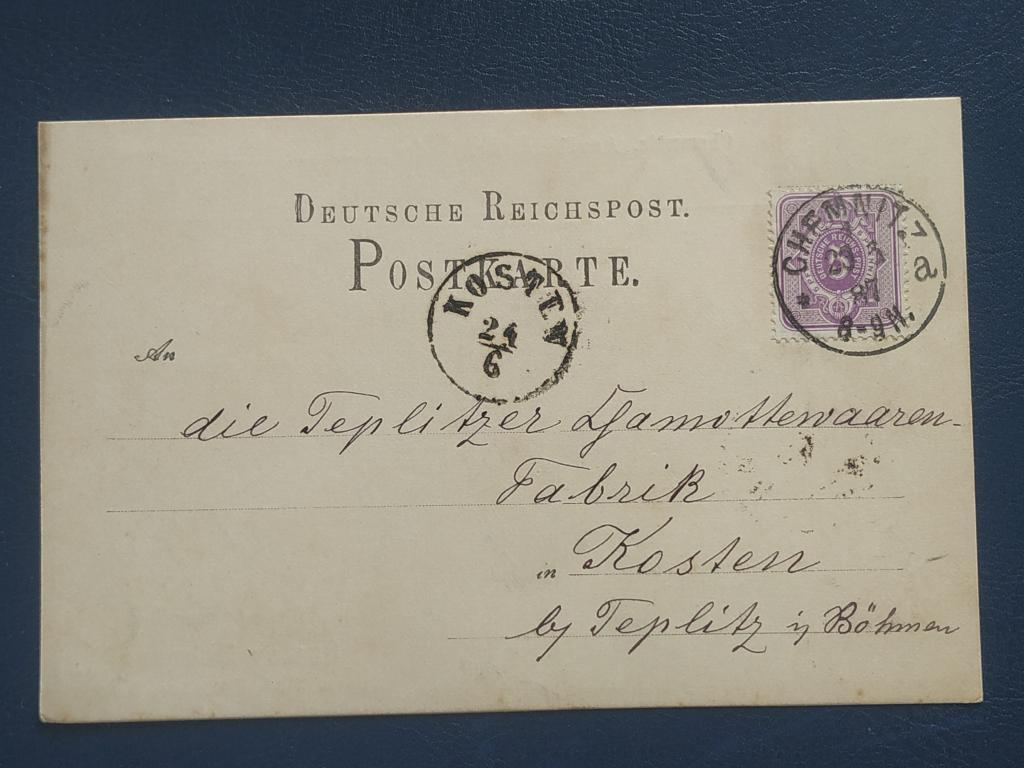 DEUTSCHE REICHSPOST.
POSTKARTE.
CHEMNITZ
a
23
87
8-9N.
KOSTEN
24
6
An
die Teplitzer Chamottewaaren-
Fabrik
in Kosten
b/ Teplitz i/ Böhmen